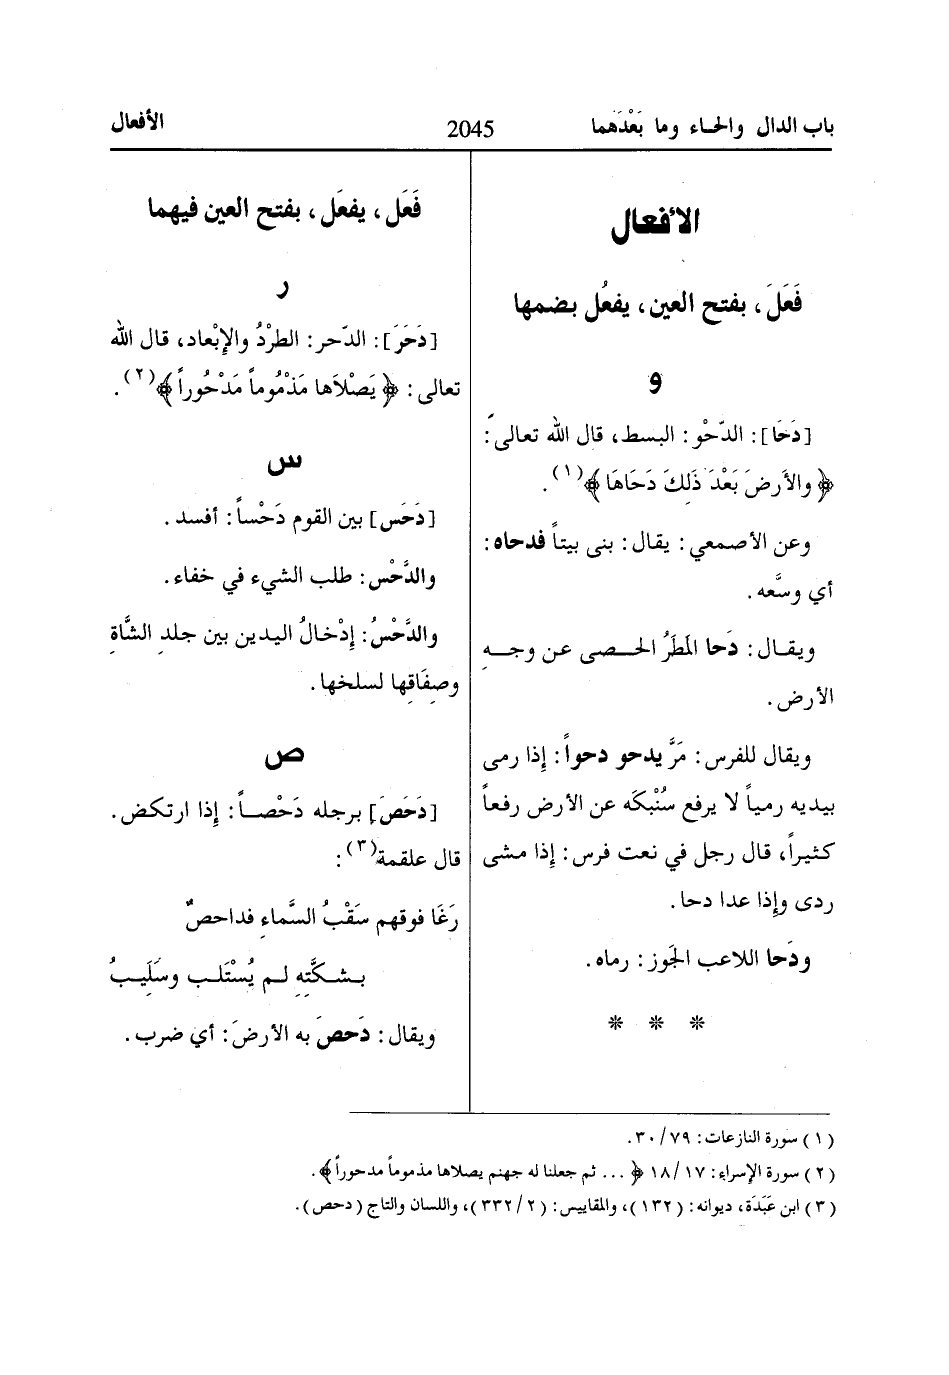 باب الدال والحاء وما بَعْدَهما
2045
الأفعال
الأفعال
فَعَلَ، بفتح العين، يفعُل بضمها
و
[دَحَا]: الدّحْو: البسط، قال الله تعالى:
﴿والأَرضَ بَعْدَ ذَلِكَ دَحَاهَا﴾(١).
وعن الأصمعي: يقال: بنى بيتاً فدحاه:
أي وسَّعه.
ويقال: دَحا المَطَرُ الحصى عن وجهِ
الأرض.
ويقال للفرس: مَرَّ يدحو دحواً: إذا رمى
بيديه رمياً لا يرفع سُنْبكَه عن الأرض رفعاً
كثيراً، قال رجل في نعت فرس: إذا مشى
ردى وإذا عدا دحا.
ودَحا اللاعب الجَوز: رماه.
* * *
فَعَل، يفعَل، بفتح العين فيهما
ر
[دَحَرَ]: الدّحر: الطردُ والإبْعاد، قال الله
تعالى: ﴿يَصْلاَها مَذْمُوماً مَدْحُوراً﴾(٢).
س
[دَحَس] بين القوم دَحْساً: أفسد.
والدَّحْس: طلب الشيء في خفاء.
والدَّحْسُ: إدْخالُ اليدين بين جلدِ الشَّاةِ
وصِفَاقِها لسلخها.
ص
[دَحَصَ] برجله دَحْصاً: إذا ارتكض.
قال علقمة(٣):
رَغَا فوقهم سَقْبُ السَّماءِ فداحصٌ
بشكَّتِه لم يُسْتَلب وسَلِيبُ
ويقال: دَحصَ به الأرضَ: أي ضرب.
(١) سورة النازعات: ٧٩/ ٣٠.
(٢) سورة الإسراء: ١٧/ ١٨ ﴿... ثم جعلنا له جهنم يصلاها مذموماً مدحوراً﴾.
(٣) ابن عَبَدَة، ديوانه: (١٣٢)، والمقاييس: (٢/ ٣٣٢)، واللسان والتاج (دحص).